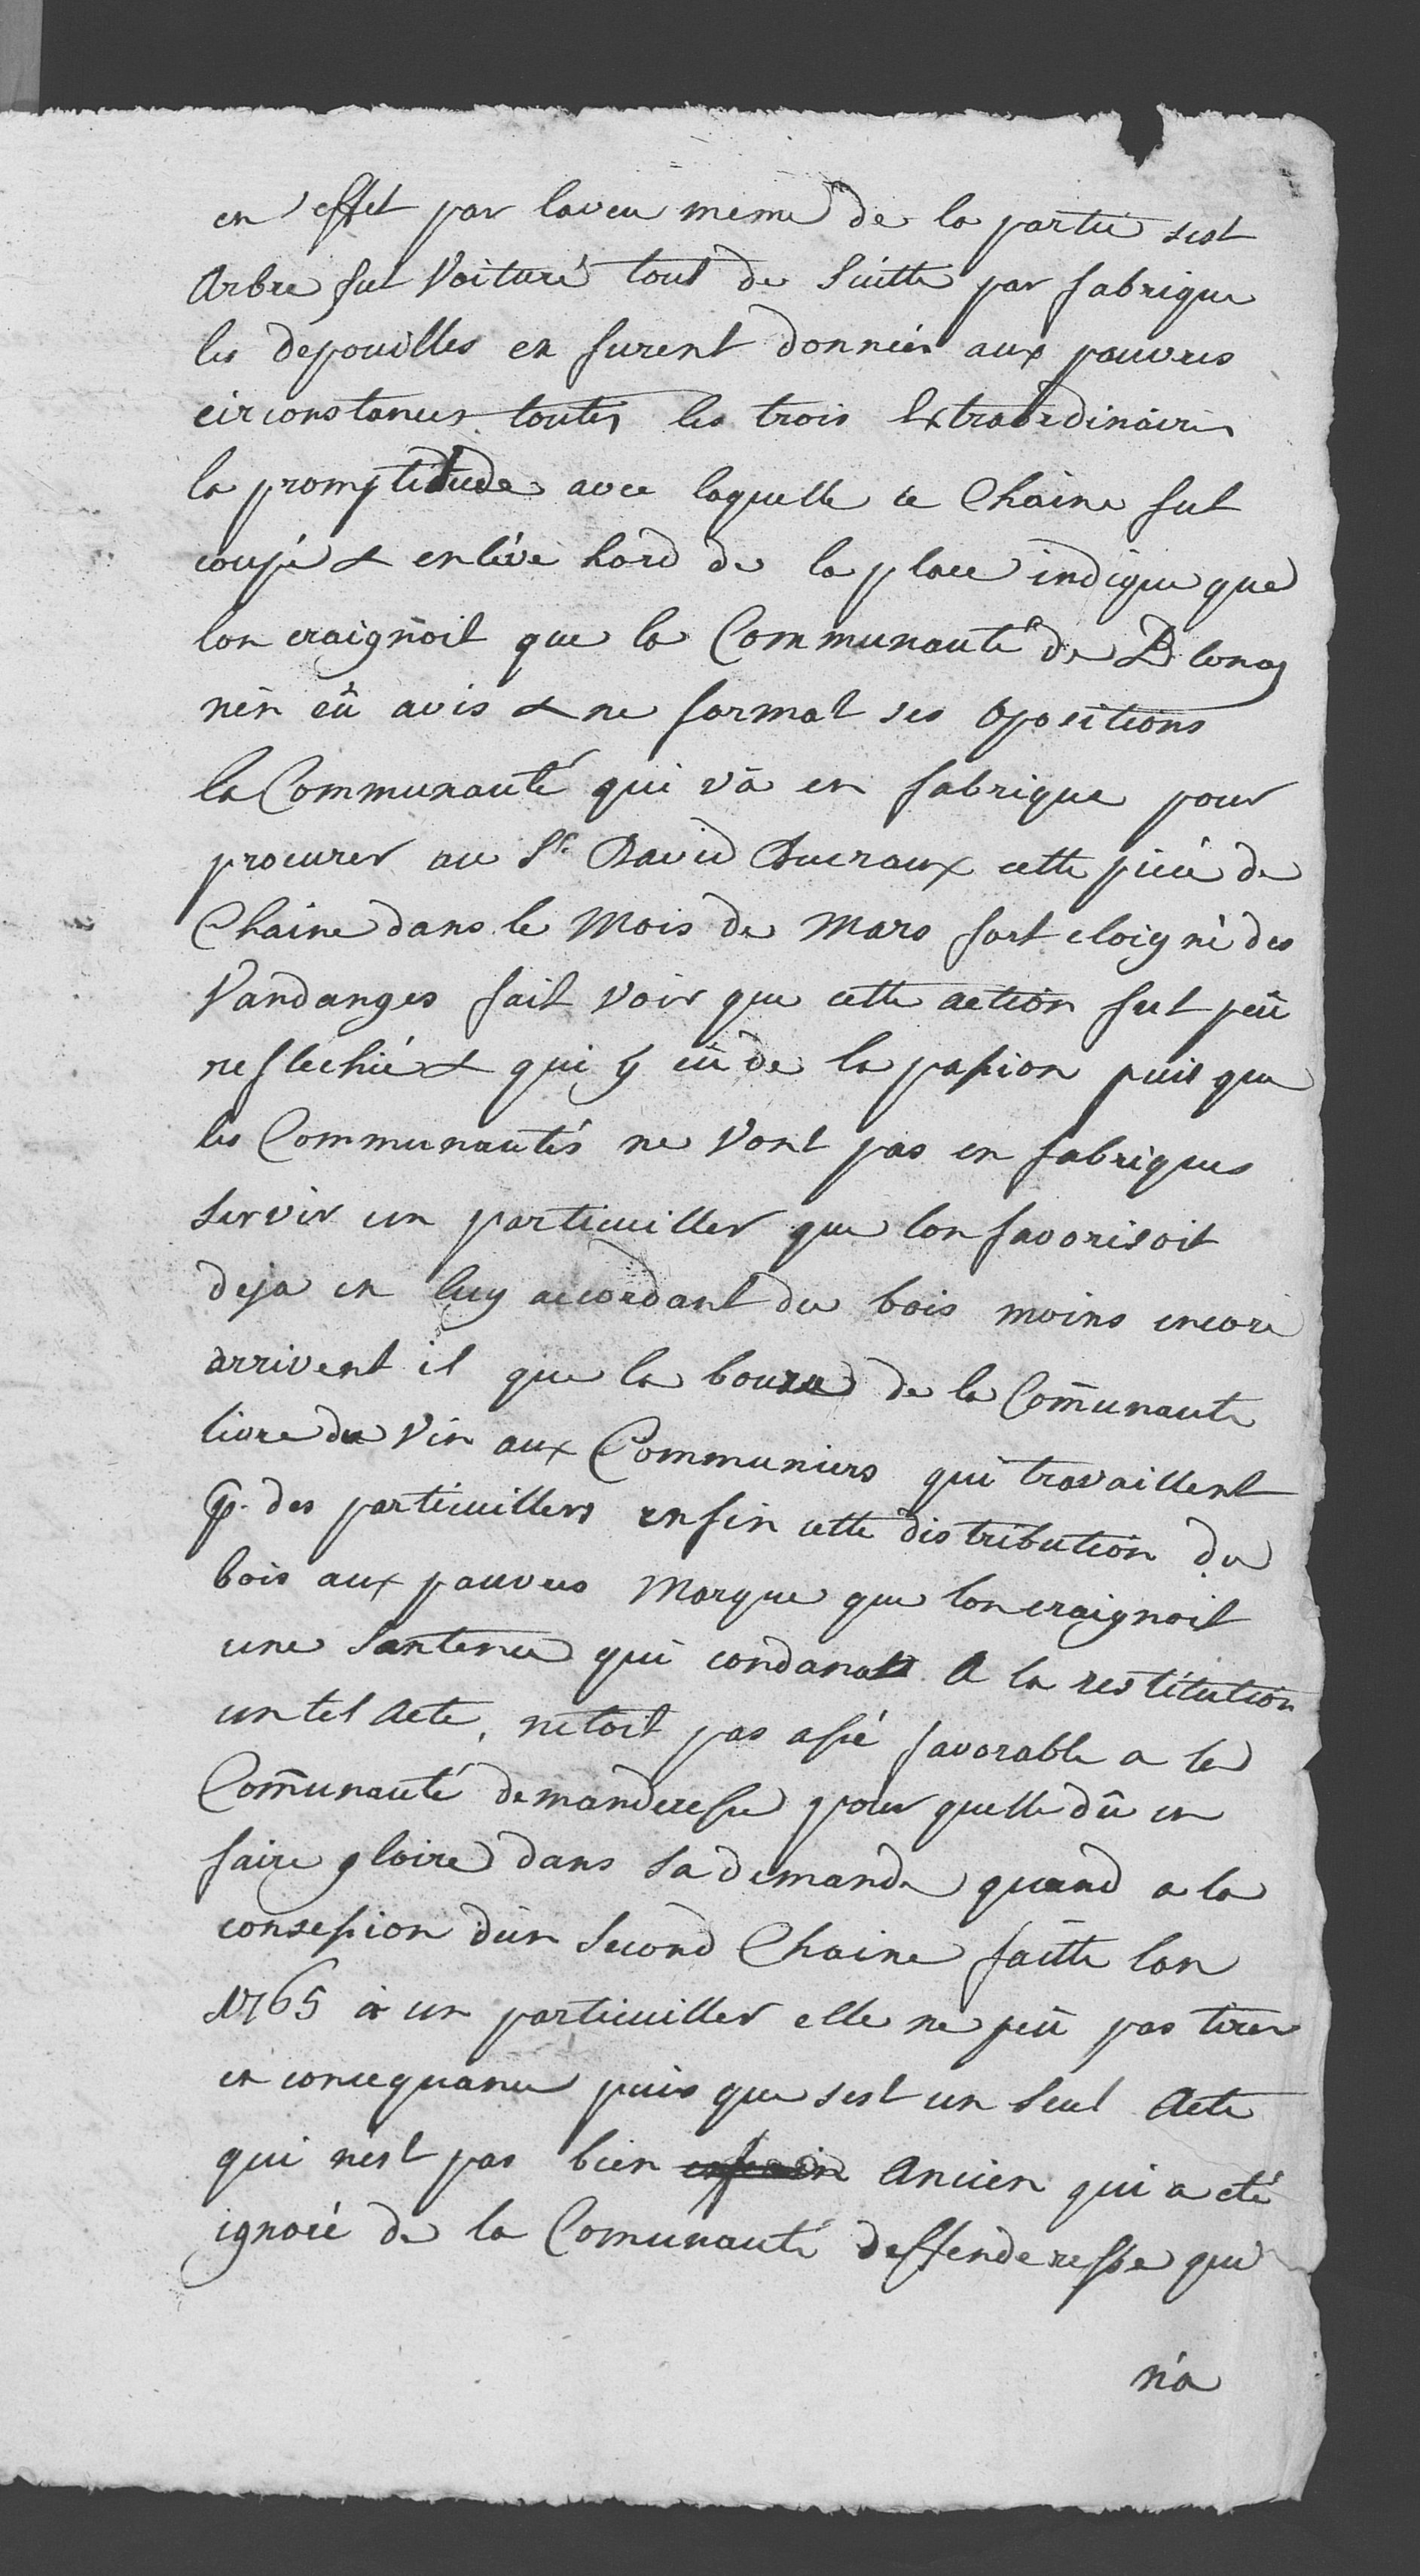 en effet par laveu meme de la partie sest
Arbre fut Voituré tout de Suitte par fabrique
les depouilles en furent donneés aux pauvres
circonstances toutes les trois Extraordinaires
la promptitude avec laquelle ce Chaine fut
coupé & enlévé hord de la place indique que
lon craignoit que la Communauté de Blonay
nén eû avis & ne format ses Opositions
la Communauté qui và en fabrique pour
procurer au Sr David Ducraux cette piéce de
Chaine dans le Mois de Mars fort eloigné des
Vandanges fait voir que cette action fut peû
reflechie & qui y eû de la passion puis que
les Communautés ne Vont pas en fabriques
servir un particuillier que lon favorisoit
deja en luy accordant du bois moins encore
arrivent il que la bourse de la Com̄unauté
livre du Vin aux Communiers qui travaillent
p. des particuilliers enfin cette distribution du
bois aux pauvres Marque que lon craignoit
une Santence qui condanat A la restitution
un tel Acte, netoit pas assé favorable a la
Com̄unauté demanderesse pour quelle dû en
faire gloire dans sa demande quand a la
consession dùn Second Chaine faitte lan
1765 à un particuillier elle ne peû pas tirer
en concequance puis que sest un Seul Acte
qui nest pas bien Ancien qui a eté
ignoré de la Comunauté deffenderesse qui
n'a